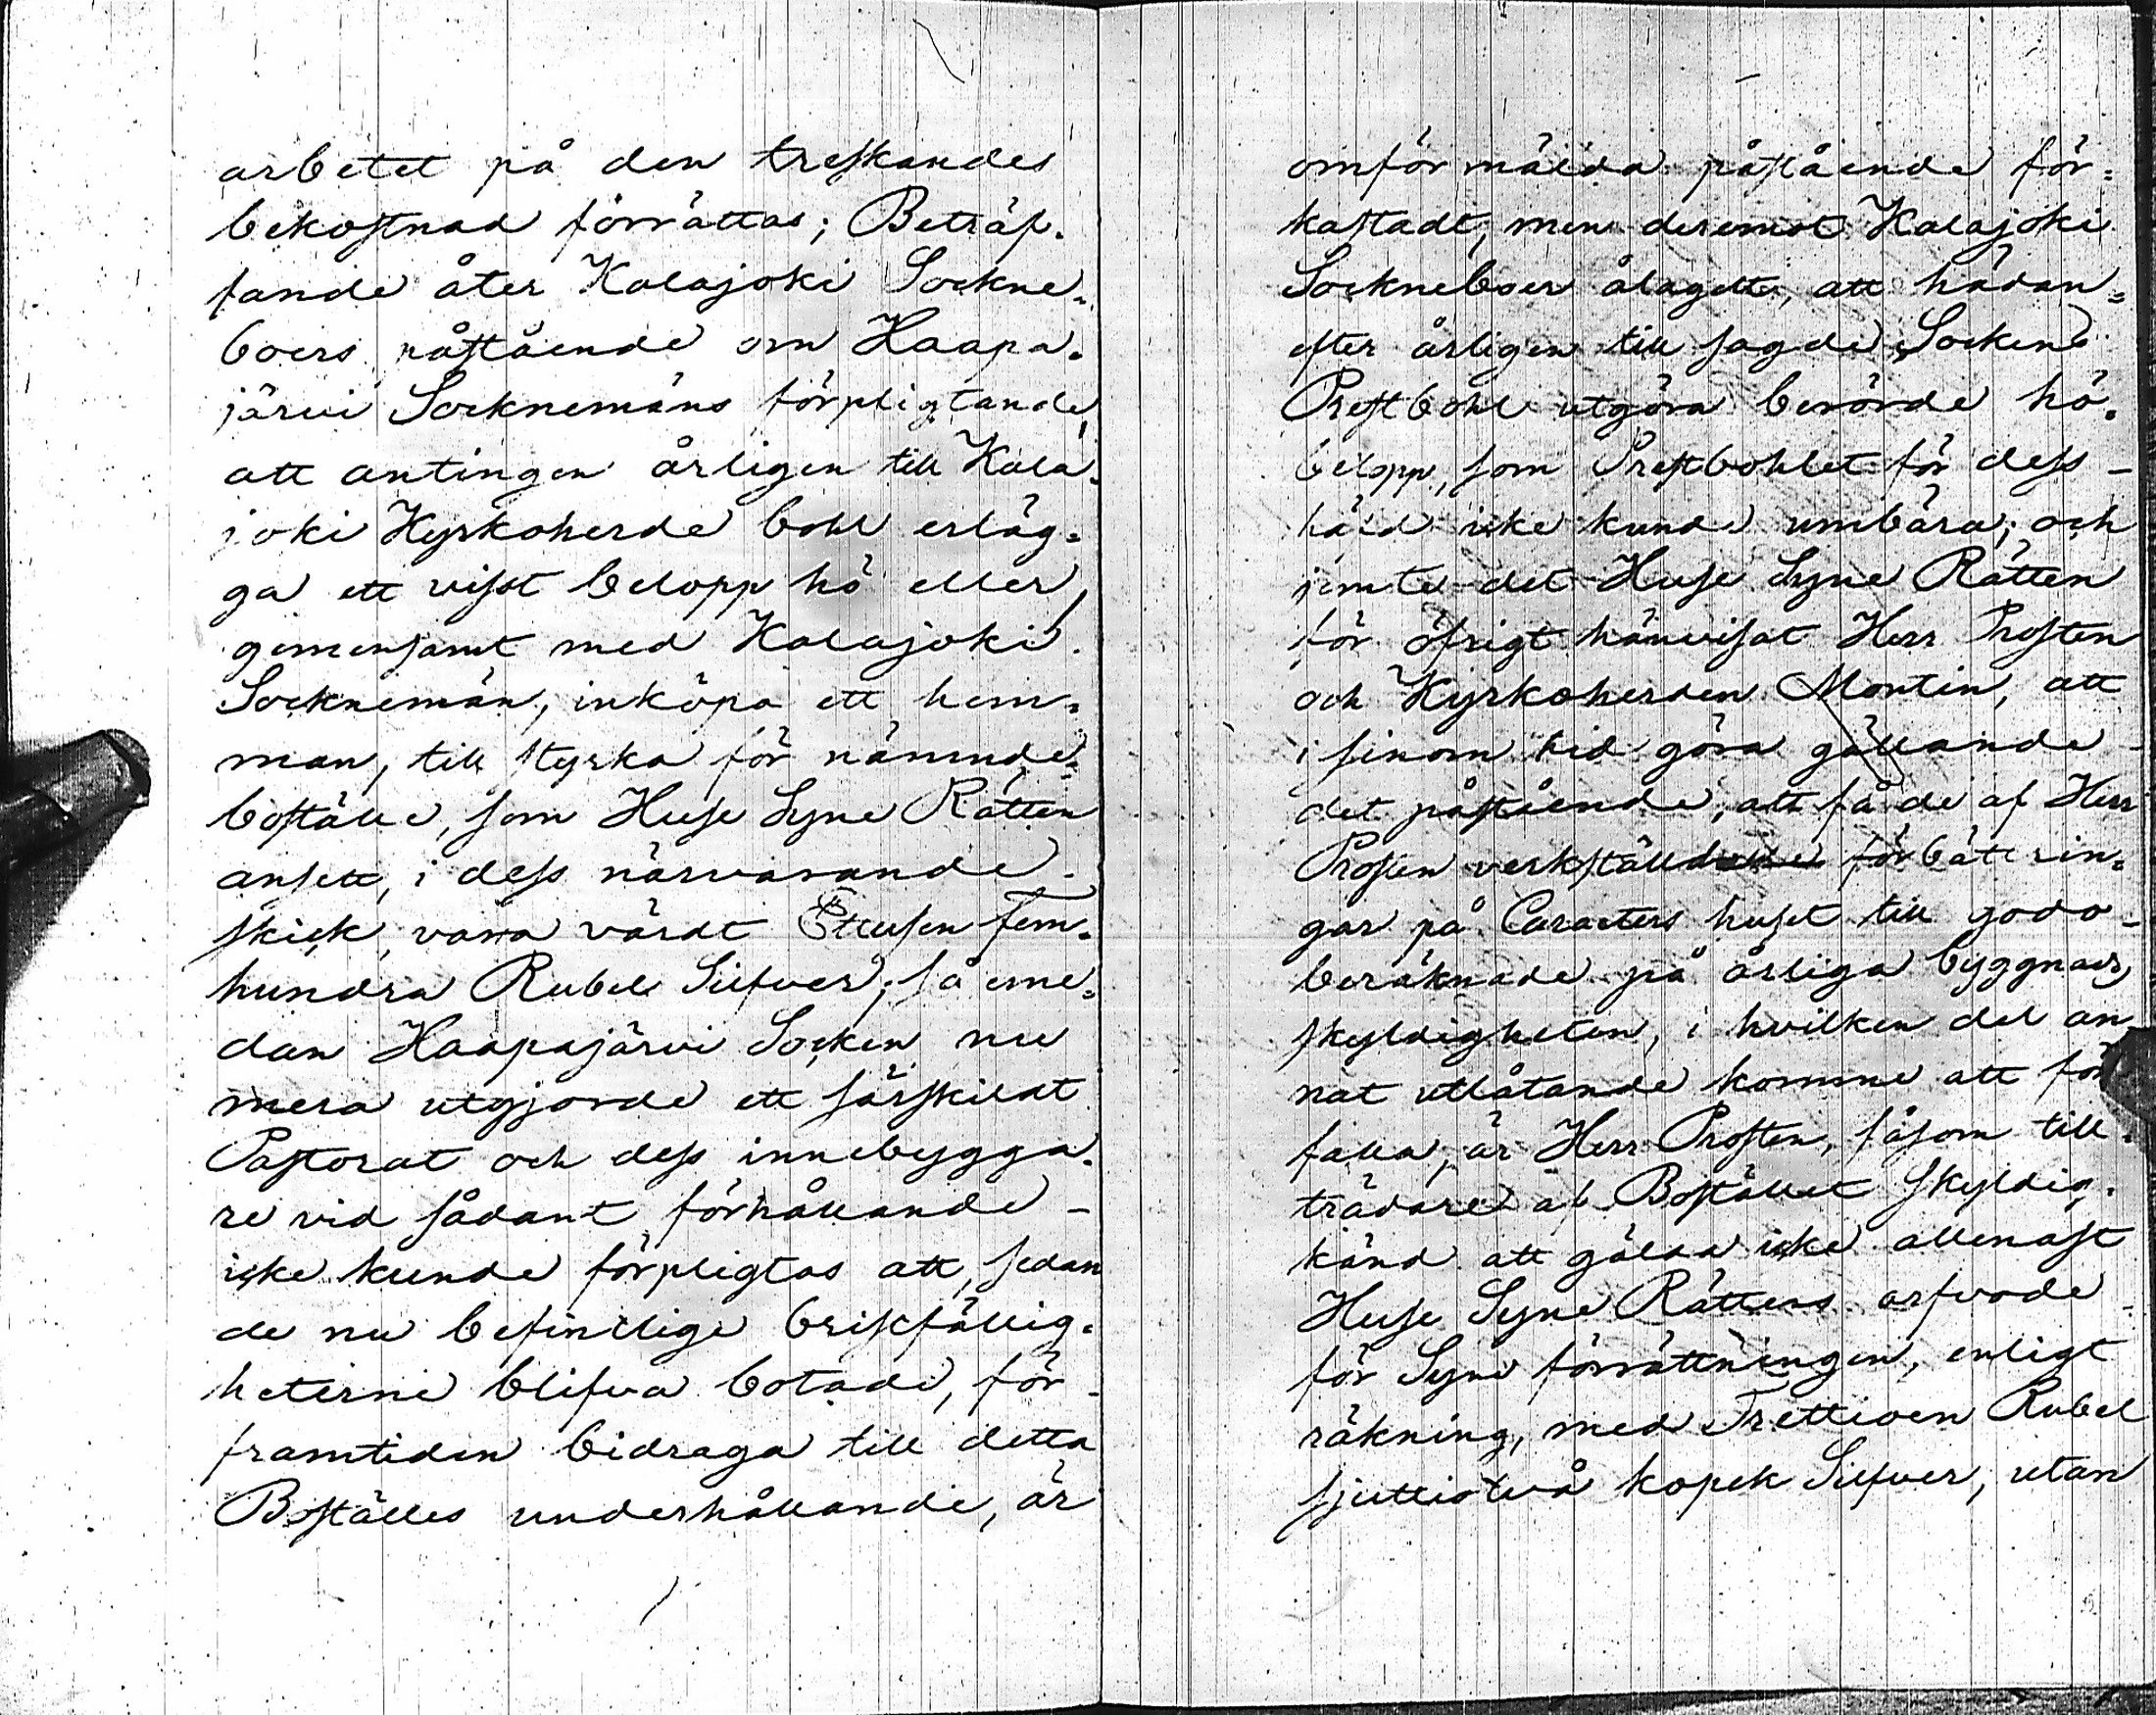 arbetet på den treskandes
bekostnad förrättas; Beträf-
fande åter Kalajoki Sockne-
boers påstående om Haapa-
järvi Socknemäns förpligtande,
att antingen årligen till Kala-
joki Kyrkoherde bohl erläg-
ga ett visst belopp hö eller,
gemensamt med Kalajoki
Socknemän, inköpa ett hem-
man, till styrka för nämnde
boställe, som Huse Syne Rätten
ansett, i dess närvarande
skick vara värdt Ettusen fem-
hundra Rubel Silfver; så eme-
dan Haapajärvi Socken nu
mera utgjorde ett särskildt
Pastorat och dess innebygga-
re vid sådant förhållande
icke kunde förpligtas att, sedan
de nu befintlige bristfällig-
heterne blifva botade, för
framtiden bidraga till detta
Boställes underhållande, är
omförmälda påstående för-
kastadt, men deremot Kalajoki
Sockneboer ålagde, att hädan-
efter årligen till sagde Sockens
Prestbohl utgöra berörde hö-
belopp, som Prestbohlet för dess
häfd icke kunde umbära; och
jemte det Huse Syne Rätten
för öfrigt hänvisat Herr Prosten
och Kyrkoherden Montin, att
i sinom tid göra gällande
det påstående, att få de af Herr
Prosten verkställde förbätterin-
gar på Caracters huset till godo
beräknade på årliga byggnads
skyldigheten, i hvilken del an
nat utlåtande komme att för
falla, är Herr Prosten, såsom till-
trädare af Bostället skyldig
känd att gälda icke allenast
Huse Syne Rättens arfvode
för Syne förrättningen, enligt
räkning, med Trettioen Rubel
sjuttiotvå kopek Silfver, utan